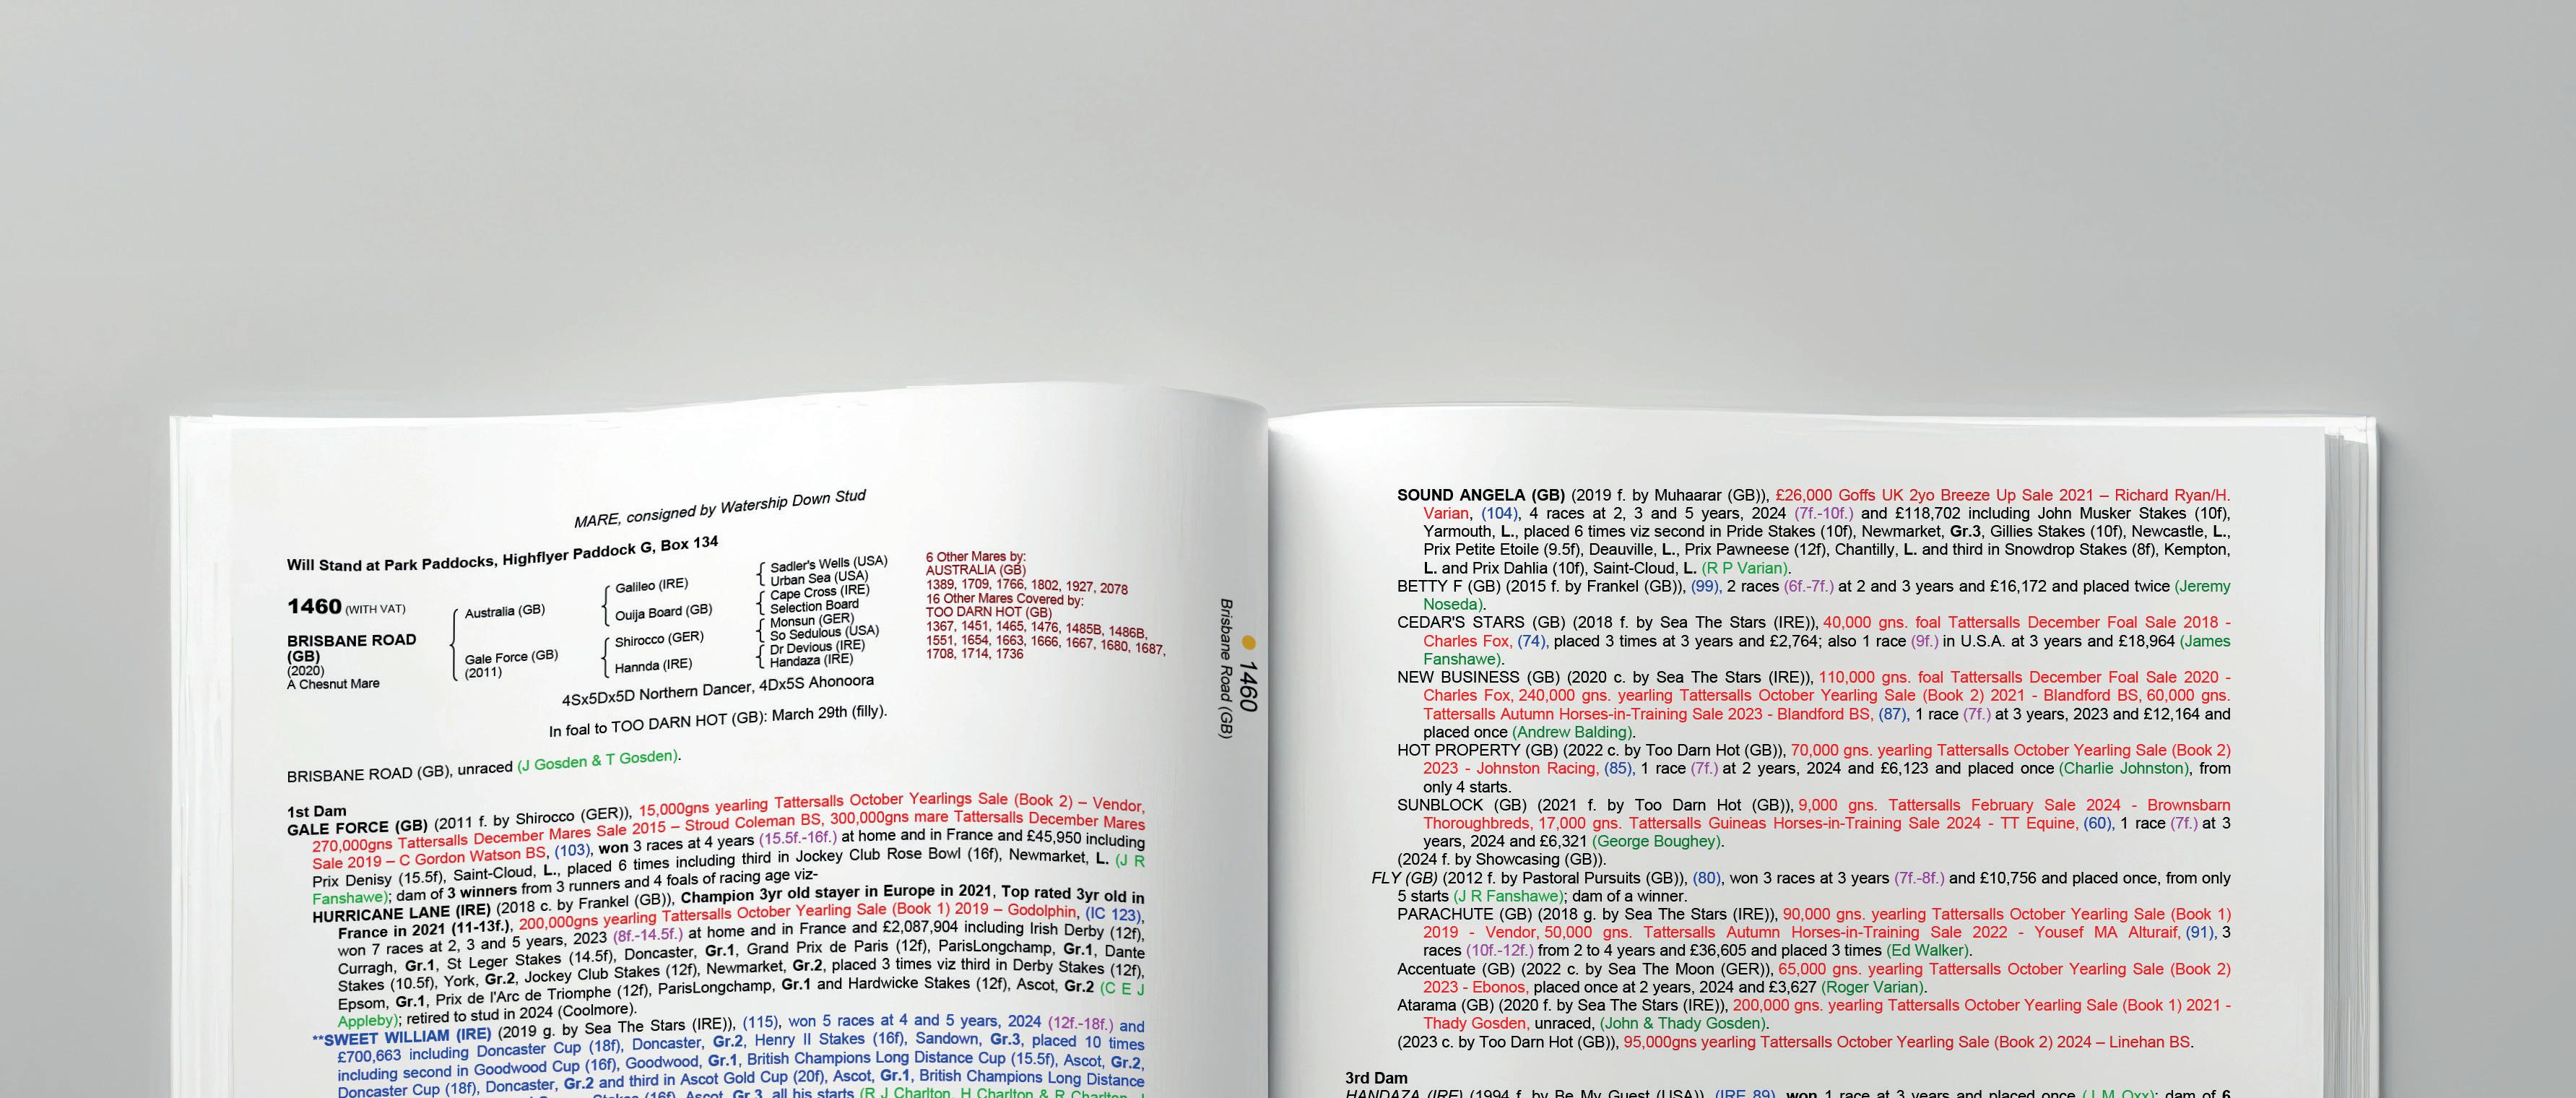 MARE, consigned by Watership Down Stud
Will Stand at Park Paddocks, Highflyer Paddock G, Box 134
1460 (WITH VAT)
BRISBANE ROAD
(GB)
(2020)
A Chesnut Mare
Australia (GB)
Gale Force (GB)
(2011)
Galileo (IRE)
Ouija Board (GB)
Shirocco (GER)
Hannda (IRE)
Sadler's Wells (USA)
Urban Sea (USA)
Cape Cross (IRE)
Selection Board
Monsun (GER)
So Sedulous (USA)
Dr Devious (IRE)
Handaza (IRE)
6 Other Mares by:
AUSTRALIA (GB)
1389, 1709, 1766, 1802, 1927, 2078
16 Other Mares Covered by:
TOO DARN HOT (GB)
1367, 1451, 1465, 1476, 1485B, 1486B,
1551, 1654, 1663, 1666, 1667, 1680, 1687,
1708, 1714, 1736
4Sx5Dx5D Northern Dancer, 4Dx5S Ahonoora
In foal to TOO DARN HOT (GB): March 29th (filly).
BRISBANE ROAD (GB), unraced (J Gosden & T Gosden).
1st Dam
GALE FORCE (GB) (2011 f. by Shirocco (GER)), 15,000gns yearling Tattersalls October Yearlings Sale (Book 2) – Vendor,
270,000gns Tattersalls December Mares Sale 2015 – Stroud Coleman BS, 300,000gns mare Tattersalls December Mares
Sale 2019 – C Gordon Watson BS, (103), won 3 races at 4 years (15.5f.-16f.) at home and in France and £45,950 including
Prix Denisy (15.5f), Saint-Cloud, L., placed 6 times including third in Jockey Club Rose Bowl (16f), Newmarket, L. (J R
Fanshawe); dam of 3 winners from 3 runners and 4 foals of racing age viz-
HURRICANE LANE (IRE) (2018 c. by Frankel (GB)), Champion 3yr old stayer in Europe in 2021, Top rated 3yr old in
France in 2021 (11-13f.), 200,000gns yearling Tattersalls October Yearling Sale (Book 1) 2019 – Godolphin, (IC 123),
won 7 races at 2, 3 and 5 years, 2023 (8f.-14.5f.) at home and in France and £2,087,904 including Irish Derby (12f),
Curragh, Gr.1, St Leger Stakes (14.5f), Doncaster, Gr.1, Grand Prix de Paris (12f), ParisLongchamp, Gr.1, Dante
Stakes (10.5f), York, Gr.2, Jockey Club Stakes (12f), Newmarket, Gr.2, placed 3 times viz third in Derby Stakes (12f),
Epsom, Gr.1, Prix de l'Arc de Triomphe (12f), ParisLongchamp, Gr.1 and Hardwicke Stakes (12f), Ascot, Gr.2 (C E J
Appleby); retired to stud in 2024 (Coolmore).
**SWEET WILLIAM (IRE) (2019 g. by Sea The Stars (IRE)), (115), won 5 races at 4 and 5 years, 2024 (12f.-18f.) and
£700,663 including Doncaster Cup (18f), Doncaster, Gr.2, Henry II Stakes (16f), Sandown, Gr.3, placed 10 times
including second in Goodwood Cup (16f), Goodwood, Gr.1, British Champions Long Distance Cup (15.5f), Ascot, Gr.2,
Doncaster Cup (18f), Doncaster, Gr.2 and third in Ascot Gold Cup (20f), Ascot, Gr.1, British Champions Long Distance
Stakes (16f), Ascot, Gr.3, all his starts (R J Charlton, H Charlton & R Charlton, J
1460
Brisbane Road (GB)
SOUND ANGELA (GB) (2019 f. by Muhaarar (GB)), £26,000 Goffs UK 2yo Breeze Up Sale 2021 – Richard Ryan/H.
Varian, (104), 4 races at 2, 3 and 5 years, 2024 (7f.-10f.) and £118,702 including John Musker Stakes (10f),
Yarmouth, L., placed 6 times viz second in Pride Stakes (10f), Newmarket, Gr.3, Gillies Stakes (10f), Newcastle, L.,
Prix Petite Etoile (9.5f), Deauville, L., Prix Pawneese (12f), Chantilly, L. and third in Snowdrop Stakes (8f), Kempton,
L. and Prix Dahlia (10f), Saint-Cloud, L. (R P Varian).
BETTY F (GB) (2015 f. by Frankel (GB)), (99), 2 races (6f.-7f.) at 2 and 3 years and £16,172 and placed twice (Jeremy
Noseda).
CEDAR'S STARS (GB) (2018 f. by Sea The Stars (IRE)), 40,000 gns. foal Tattersalls December Foal Sale 2018 -
Charles Fox, (74), placed 3 times at 3 years and £2,764; also 1 race (9f.) in U.S.A. at 3 years and £18,964 (James
Fanshawe).
NEW BUSINESS (GB) (2020 c. by Sea The Stars (IRE)), 110,000 gns. foal Tattersalls December Foal Sale 2020 -
Charles Fox, 240,000 gns. yearling Tattersalls October Yearling Sale (Book 2) 2021 - Blandford BS, 60,000 gns.
Tattersalls Autumn Horses-in-Training Sale 2023 - Blandford BS, (87), 1 race (7f.) at 3 years, 2023 and £12,164 and
placed once (Andrew Balding).
HOT PROPERTY (GB) (2022 c. by Too Darn Hot (GB)), 70,000 gns. yearling Tattersalls October Yearling Sale (Book 2)
2023 - Johnston Racing, (85), 1 race (7f.) at 2 years, 2024 and £6,123 and placed once (Charlie Johnston), from
only 4 starts.
SUNBLOCK (GB) (2021 f. by Too Darn Hot (GB)), 9,000 gns. Tattersalls February Sale 2024 - Brownsbarn
Thoroughbreds, 17,000 gns. Tattersalls Guineas Horses-in-Training Sale 2024 - TT Equine, (60), 1 race (7f.) at 3
years, 2024 and £6,321 (George Boughey).
(2024 f. by Showcasing (GB)).
FLY (GB) (2012 f. by Pastoral Pursuits (GB)), (80), won 3 races at 3 years (7f.-8f.) and £10,756 and placed once, from only
5 starts (J R Fanshawe); dam of a winner.
PARACHUTE (GB) (2018 g. by Sea The Stars (IRE)), 90,000 gns. yearling Tattersalls October Yearling Sale (Book 1)
2019 - Vendor, 50,000 gns. Tattersalls Autumn Horses-in-Training Sale 2022 - Yousef MA Alturaif, (91), 3
races (10f.-12f.) from 2 to 4 years and £36,605 and placed 3 times (Ed Walker).
Accentuate (GB) (2022 c. by Sea The Moon (GER)), 65,000 gns. yearling Tattersalls October Yearling Sale (Book 2)
2023 - Ebonos, placed once at 2 years, 2024 and £3,627 (Roger Varian).
Atarama (GB) (2020 f. by Sea The Stars (IRE)), 200,000 gns. yearling Tattersalls October Yearling Sale (Book 1) 2021 -
Thady Gosden, unraced, (John & Thady Gosden).
(2023 c. by Too Darn Hot (GB)), 95,000gns yearling Tattersalls October Yearling Sale (Book 2) 2024 – Linehan BS.
3rd Dam
HANDAZA (IRE) (1994 f. by Be My Guest (USA)), (IRE 89), won 1 race at 3 years and placed once (J M Oxx); dam of 6